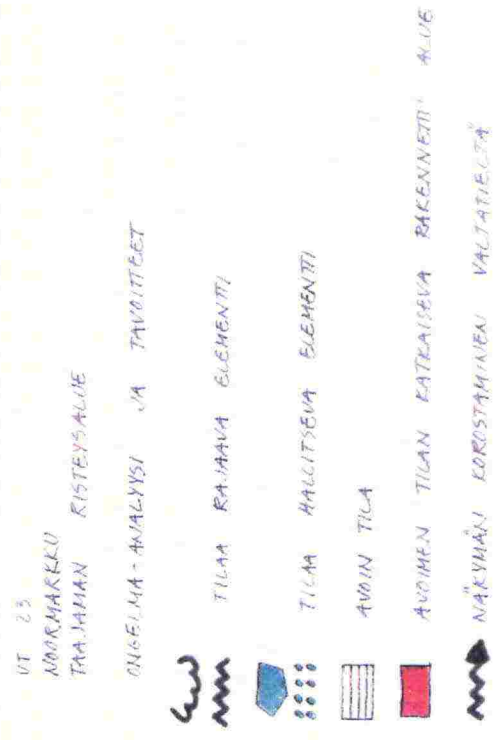 VT 23
NOORMARKKU
TAAJAMAN RISTEYSALUE
ONGELMA-ANALYYSI JA TAVOITTEET
TILAA RAJAAVA ELEMENTTI
TILAA HALLITSEVA ELEMENTTI
AVOIN TILA
AVOIMEN TILAN KATKAISEVA RAKENNETTU ALUE
NÄKYMÄN KOROSTAMINEN VALTATIELTÄ